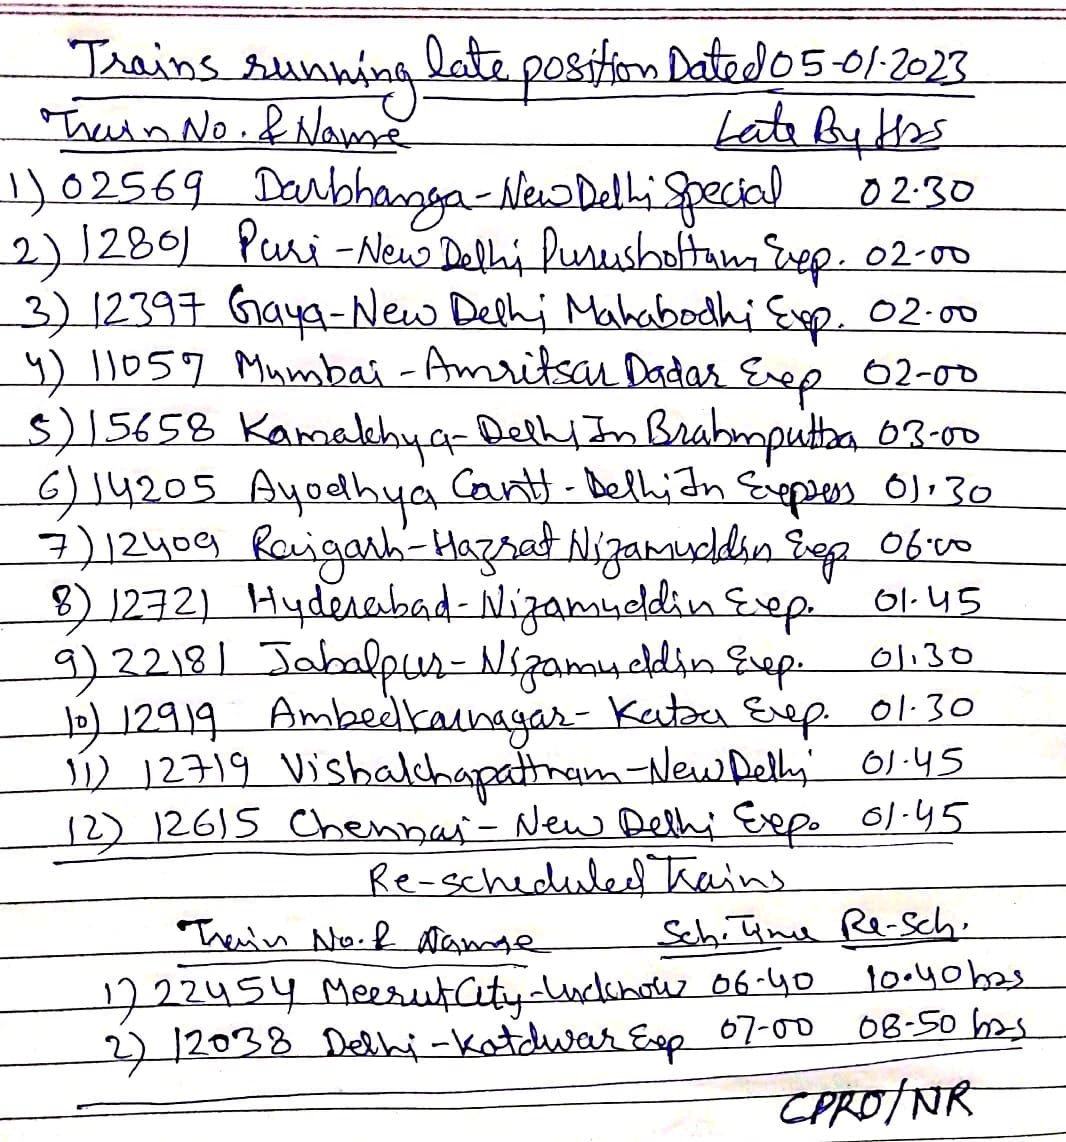 Trains running late position Dated 05-01-2023
Train No. & Name Late By Hrs
1) 02569 Darbhanga-New Delhi Special 02.30
2) 12801 Puri-New Delhi Purushottam Exp. 02-00
3) 12397 Gaya-New Delhi Mahabodhi Exp. 02.00
4) 11057 Mumbai-Amritsar Dadar Exp 02-00
5) 15658 Kamakhya-Delhi Jn Brahmputtra 03-00
6) 14205 Ayodhya Cantt-Delhi Jn Express 01.30
7) 12409 Raigarh-Hazrat Nizamuddin Exp. 06.00
8) 12721 Hyderabad-Nizamuddin Exp. 01.45
9) 22181 Jabalpur-Nizamuddin Exp. 01.30
10) 12919 Ambedkarnagar-Katra Exp. 01.30
11) 12719 Vishakhapattnam-New Delhi 01.45
12) 12615 Chennai-New Delhi Exp. 01-45
Re-scheduled Trains
Train No. & Name Sch. Time Re-Sch.
1) 22454 Meerut City-Lucknow 06-40 10.40 hrs
2) 12038 Delhi-Kotdwar Exp 07-00 08-50 hrs
CPRO/NR